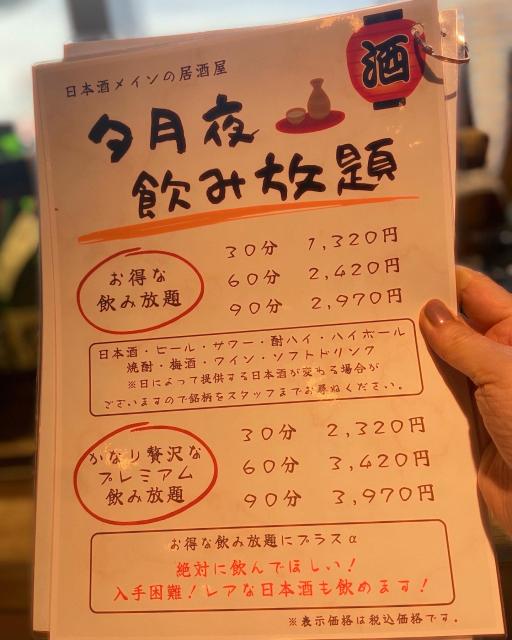 日本酒メインの居酒屋
酒
夕月夜
飲み放題
お得な
飲み放題
30分 1,320円
60分 2,420円
90分 2,970円
日本酒・ビール・サワー・酎ハイ・ハイボール
焼酎・梅酒・ワイン・ソフトドリンク
※日によって提供する日本酒が変わる場合が
ございますので銘柄をスタッフまでお尋ねください。
かなり贅沢な
プレミアム
飲み放題
30分 2,320円
60分 3,420円
90分 3,970円
お得な飲み放題にプラスα
絶対に飲んでほしい!
入手困難!レアな日本酒も飲めます!
※表示価格は税込価格です。